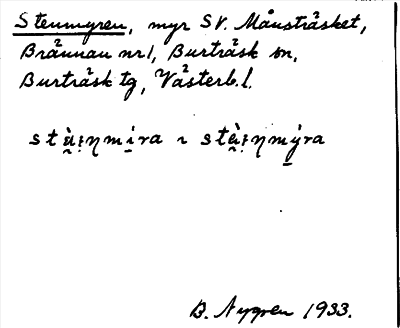 Stenmyren, myr SV. Månsträsket,
Brännan nr 1, Burträsk sn,
Burträsk tg, Västerb. l.
B. Nygren 1933.